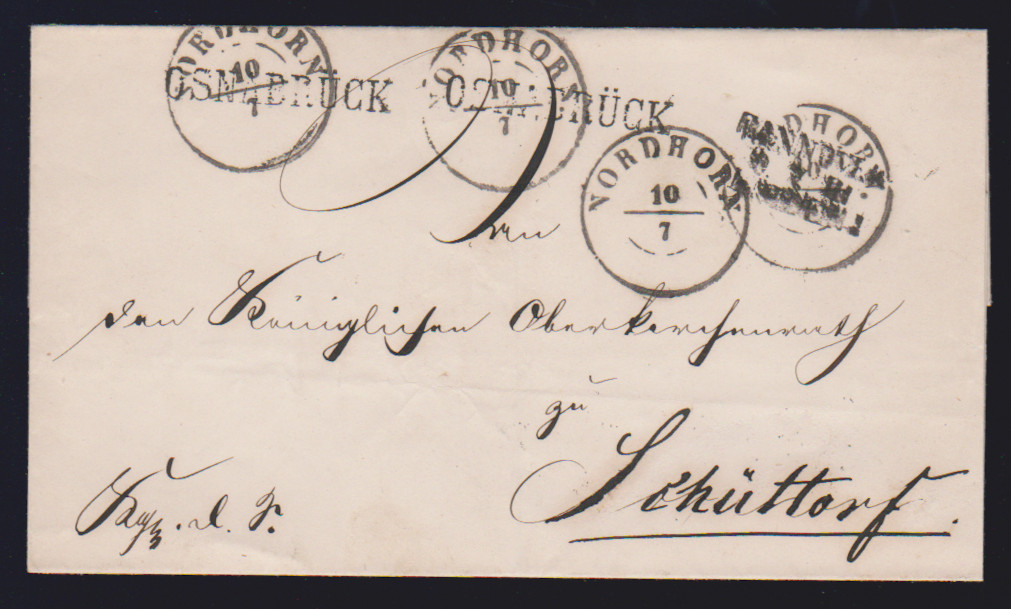 NORDHORN
10
7
OSNABRÜCK
NORDHORN
10
7
OSNABRÜCK
NORDHORN
10
7
NORDHORN
An
den Königlichen Oberkirchenrath
zu
Schüttorf.